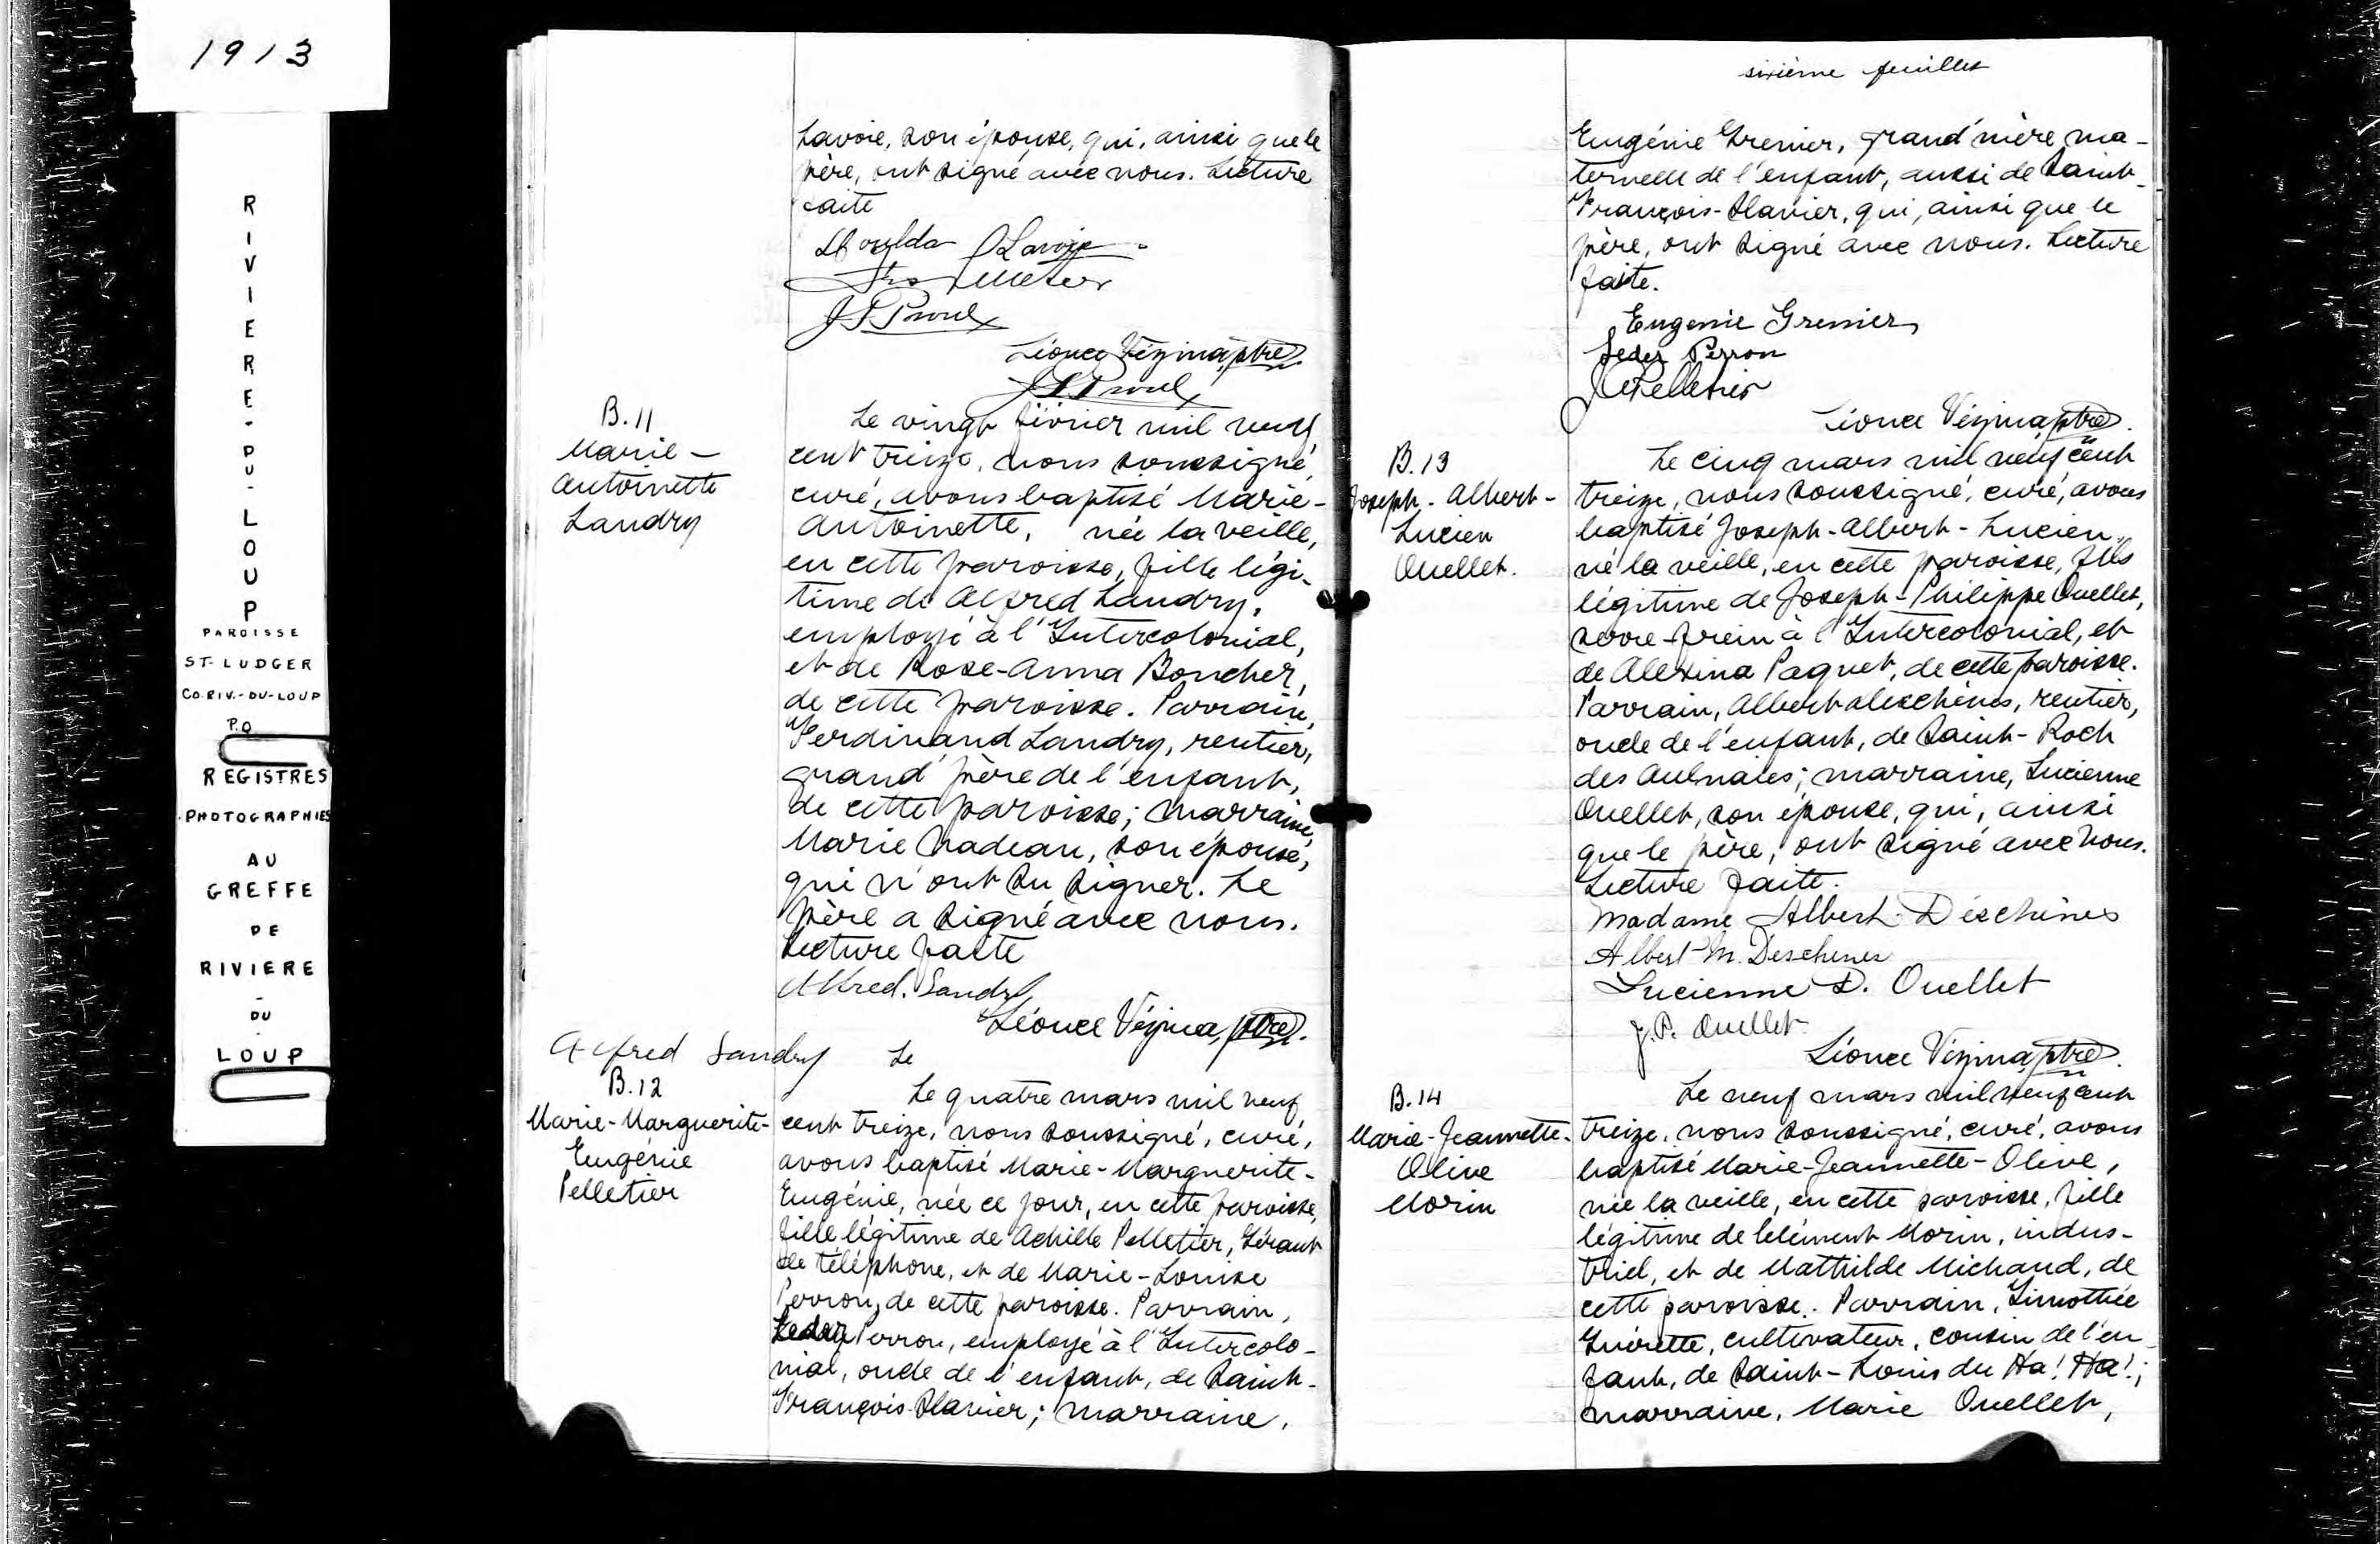 1913
RIVIERE-DU-LOUP
PAROISSE
ST-LUDGER
CO. RIV.-DU-LOUP
P.Q
REGISTRES
PHOTOGRAPHIES
AU
GREFFE
DE
RIVIERE
-
DU
-
LOUP
Lavoie, son épouse, qui, ainsi que le
père, ont signé avec nous. Lecture
faite
Lavoie
J. P. Proulx
Léonce Vézina, ptre
J. P. Proulx
B.11
Marie-
Antoinette
Landry
Le vingt février mil neuf
cent treize, nous soussigné,
curé, avons baptisé Marie-
Antoinette, née la veille,
en cette paroisse, fille légi-
time de Alfred Landry,
employé à l'Intercolonial,
et de Rose-Anna Boucher,
de cette paroisse. Parrain,
Ferdinand Landry, rentier,
grand'père de l'enfant,
de cette paroisse; marraine,
Marie Nadeau, son épouse,
qui n'ont su signer. Le
père a signé avec nous.
Lecture faite
Alfred. Landry
Léonce Vézina, ptre.
Alfred Landry Le
B.12
Marie-Marguerite-
Eugénie
Pelletier
Le quatre mars mil neuf
cent treize, nous soussigné, curé,
avons baptisé Marie-Marguerite-
Eugénie, née ce jour, en cette paroisse,
fille légitime de Achille Pelletier, Gérant
de téléphone, et de Marie-Louise
Perron, de cette paroisse. Parrain,
Perron, employé à l'Intercolo-
nial, oncle de l'enfant, de Saint-
François-Xavier; marraine,
sixième feuillet
Eugénie Grenier, grand'mère ma-
ternelle de l'enfant, aussi de Saint-
François-Xavier, qui, ainsi que le
père, ont signé avec nous. Lecture
faite.
Eugenie Grenier
Perron
Pelletier
Léonce Vézina, ptre.
B.13
Joseph-Albert-
Lucien
Ouellet.
Le cinq mars mil neuf cent
treize, nous soussigné, curé, avons
baptisé Joseph-Albert-Lucien,
né la veille, en cette paroisse, fils
légitime de Joseph-Philippe Ouellet,
serre-frein à l'Intercolonial, et
de Alexina Paquet, de cette paroisse.
Parrain, Albert Deschènes, rentier,
oncle de l'enfant, de Saint-Roch
des Aulnaies; marraine, Lucienne
Ouellet, son épouse, qui, ainsi
que le père, ont signé avec nous.
Lecture faite.
Madame Albert Déschènes
Albert M. Deschenes
Lucienne D. Ouellet
J.P. Ouellet
Léonce Vézina, ptre.
B.14
Marie-Jeannette-
Olive
Morin
Le neuf mars mil neuf cent
treize, nous soussigné, curé, avons
baptisé Marie-Jeannette-Olive,
née la veille, en cette paroisse, fille
légitime de Clément Morin, indus-
triel, et de Mathilde Michaud, de
cette paroisse. Parrain, Timothée
Guérette, cultivateur, cousin de l'en-
fant, de Saint-Louis du Ha! Ha!;
marraine, Marie Ouellet,